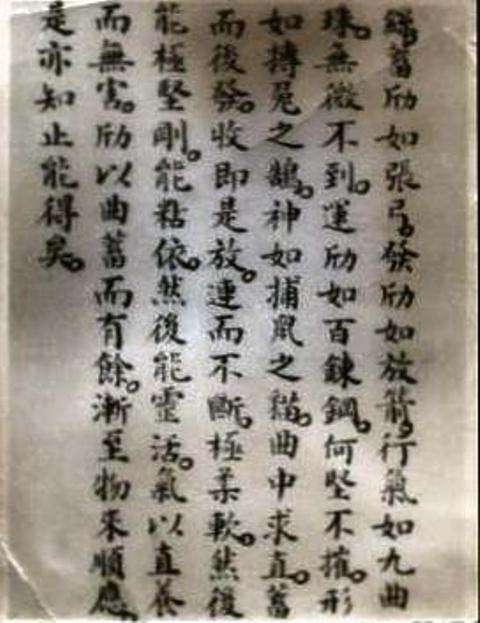 蓄劤如張弓。發劤如放箭。行氣如九曲
珠。無微不到。運劤如百鍊鋼。何堅不摧。形
如搏兔之鵠。神如捕鼠之貓。曲中求直。蓄
而後發。收即是放。連而不斷。極柔軟。然後
能極堅剛。能粘依。然後能靈活。氣以直養
而無害。劤以曲蓄而有餘。漸至物來順應。
是亦知止能得矣。